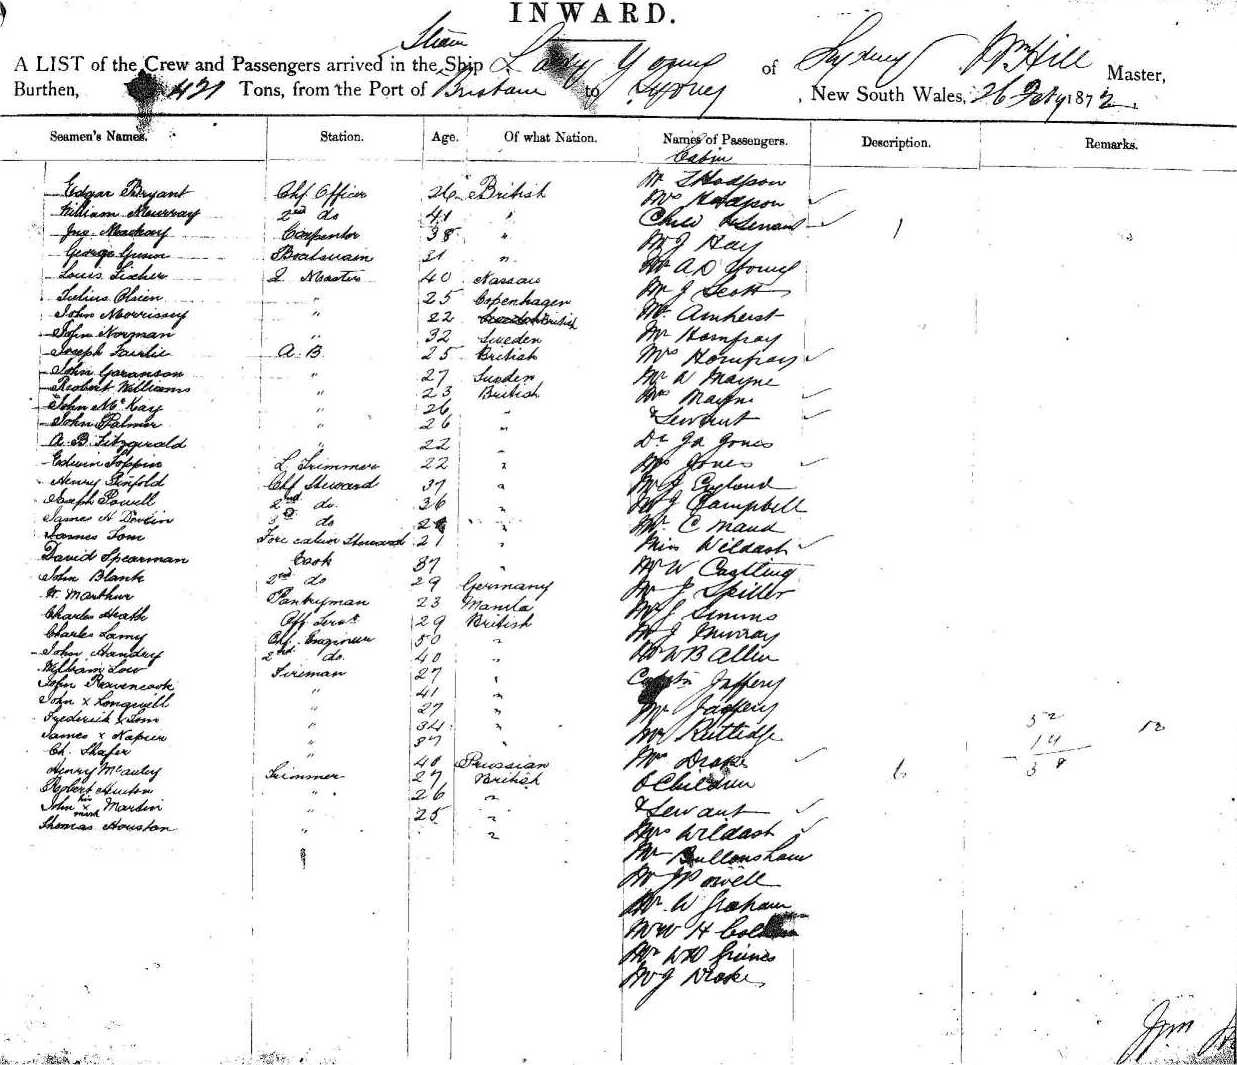 INWARD.
Steam
A LIST of the Crew and Passengers arrived in the Ship Lady Young of Sydney Wm Hill Master,
Burthen, 421 Tons, from the Port of Brisbane to Sydney, New South Wales, 26 Feby 1872
Seamen's Names. Station. Age. Of what Nation. Names of Passengers. Description. Remarks.
Cabin
Edgar Bryant Chf Officer 26 British
William Murray 2nd do 41 "
Jno. Mackay Carpenter 38 "
George Gunn Boatswain 31 "
Louis Fischer Q. Masters 40 Nassau
Julius Olsien " 25 Copenhagen
John Morrissey " 22 British
John Norman " 32 Sweden
Joseph Fairlie A.B. 25 British
John Goranson " 27 Sweden
Robert Williams " 23 British
John McKay " 26 "
John Palmer " 26 "
A. B. Fitzgerald " 22 "
Edwin Toppin L. Trimmer 22 "
Henry Penfold Chf Steward 37 "
Joseph Powell 2nd do. 36 "
James H Devlin 3d do "
James Tom Fore cabin Steward 21 "
David Spearman Cook 37 "
John Blank 2nd do 29 Germany
Marthur Pantryman 23 Manila
Charles Heath Off Servt 29 British
Charles Lamy Chf Engineer 50 "
John Handry 2nd do. 40 "
William Low Fireman 27 "
John Ravencook " 41 "
John x Longwell " 27 "
Frederick x Tom " 34 "
James x Napier " 37 "
Ch. Shafer " 40 Prussian
Henry McAuley Trimmer 27 British
Robert Huton " 26 "
John his x mark Martin " 25 "
Thomas Houston " "
Mr T Hodgson
Mrs Hodgson
Child & Servant 1
Mr J Hay
Mr A D Young
Mr J Scott
Mr Amherst
Mr Homfray
Mrs Homfray
Mr W Mayne
Mrs Mayne
& Servant
Dr Jones
Mrs Jones
Mr J
Mr J Campbell
Mr C Maud
Miss Wildash
Mr W Castling
Mr J Spiller
Mr J Simms
Mr J Murray
Mr W B Allen
Captn Jaffery
Mr Jaffery
Mr Rutledge
Mrs Drake
6 Children 6
& Servant
Mrs Wildash
Mr Bullenshaw
Mr J Powell
Mr W Graham
Mr W H
Mr W H Grimes
Mr J Drake
52
14
38
12